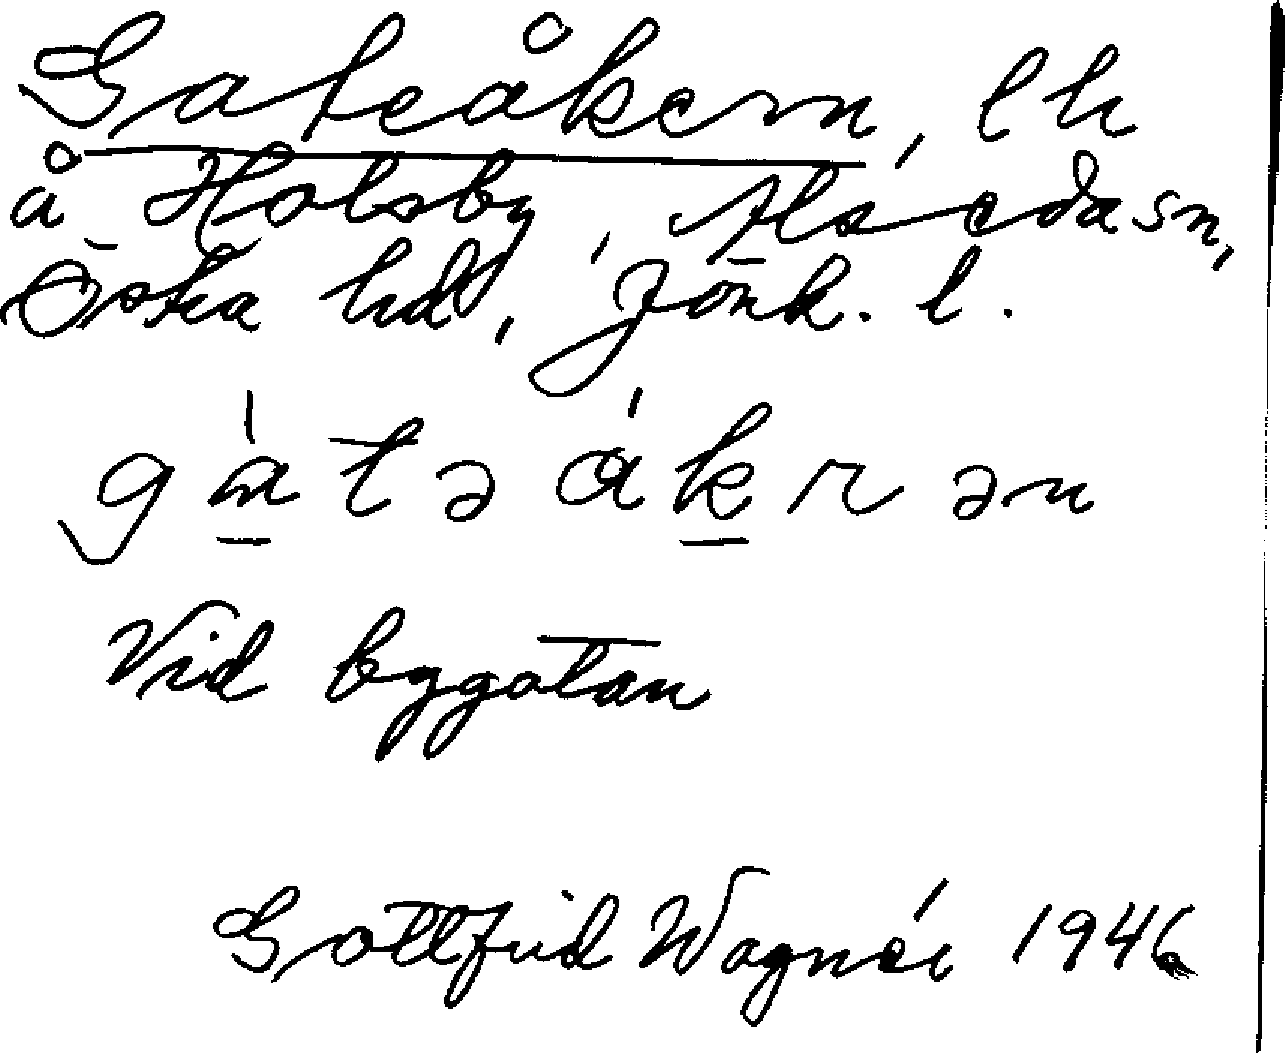 Gateåkern, lh
å Holsby, Alsedasn,
Östra hd, Jönk. l.
gàtəákrən
Vid bygatan
Gottfrid Wagnér 1946